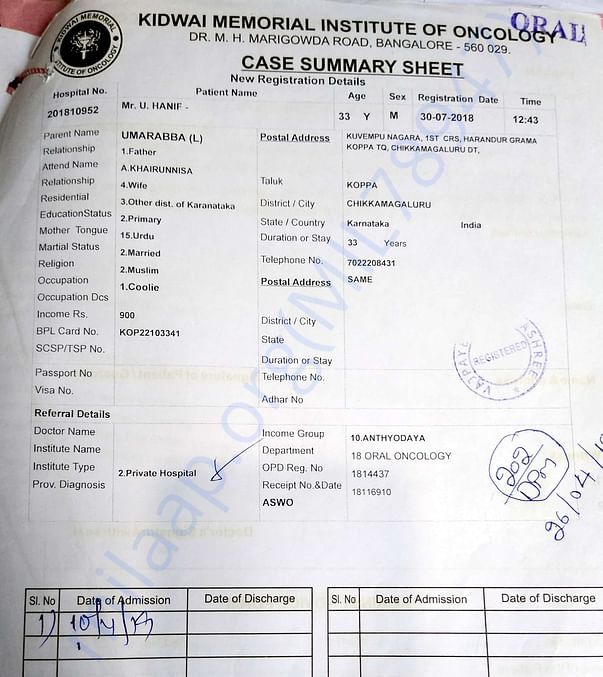 ORAL
KIDWAI MEMORIAL
INSTITUTE OF ONCOLOGY
KIDWAI MEMORIAL INSTITUTE OF ONCOLOGY
DR. M. H. MARIGOWDA ROAD, BANGALORE - 560 029.
CASE SUMMARY SHEET
New Registration Details
Hospital No. Patient Name Age Sex Registration Date Time
201810952 Mr. U. HANIF - 33 Y M 30-07-2018 12:43
Parent Name UMARABBA (L) Postal Address KUVEMPU NAGARA, 1ST CRS, HARANDUR GRAMA
Relationship 1.Father KOPPA TQ, CHIKKAMAGALURU DT,
Attend Name A.KHAIRUNNISA
Relationship 4.Wife Taluk KOPPA
Residential 3.Other dist. of Karanataka District / City CHIKKAMAGALURU
EducationStatus 2.Primary State / Country Karnataka India
Mother Tongue 15.Urdu Duration or Stay 33 Years
Martial Status 2.Married Telephone No. 7022208431
Religion 2.Muslim Postal Address SAME
Occupation 1.Coolie
Occupation Dcs
Income Rs. 900 District / City
BPL Card No. KOP22103341 State
SCSP/TSP No. Duration or Stay
Passport No Telephone No.
Visa No. Adhar No
VAJPAYE ASHREE
REGISTERED
Referral Details
Doctor Name Income Group 10.ANTHYODAYA
Institute Name Department 18 ORAL ONCOLOGY
Institute Type 2.Private Hospital OPD Reg. No 1814437
Prov. Diagnosis Receipt No.&Date 18116910
ASWO
202
26/04/
Sl. No Date of Admission Date of Discharge Sl. No Date of Admission Date of Discharge
1) 10/4/19
milaap.org